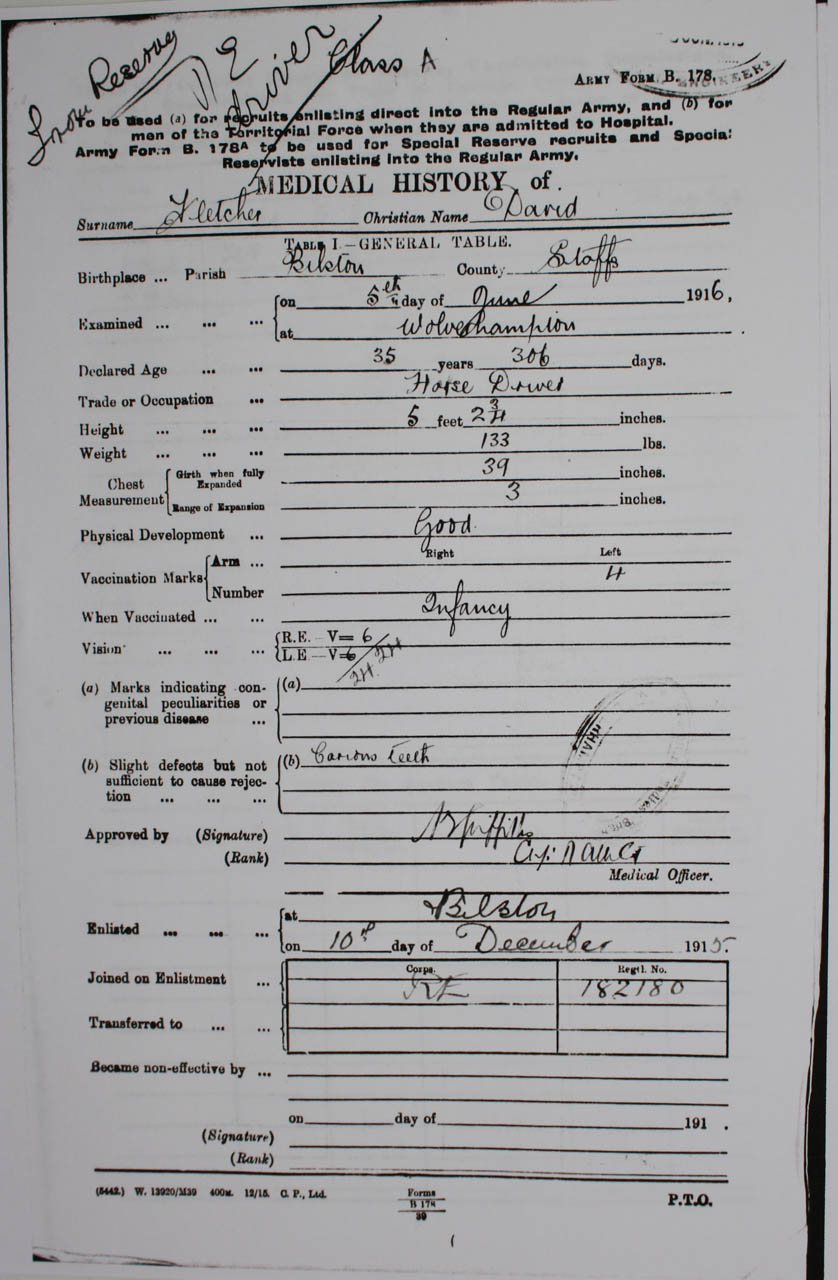 From Reserve
RE
driver
Class A
ENGINEERS
ARMY FORM B. 178.
To be used (a) for recruits enlisting direct into the Regular Army, and (b) for
men of the Territorial Force when they are admitted to Hospital.
Army Form B. 178A to be used for Special Reserve recruits and Special
Reservists enlisting into the Regular Army.
MEDICAL HISTORY of.
Surname Fletcher Christian Name David
TABLE I.—GENERAL TABLE.
Birthplace ... Parish Bilston County Staffs
Examined ... ... ... on 5th day of June 1916,
at Wolverhampton
Declared Age ... ... 35 years 306 days.
Trade or Occupation ... Horse Driver
Height ... ... ... 5 feet 2 3/4 inches.
Weight ... ... ... 133 lbs.
Chest Measurement Girth when fully Expanded 39 inches.
Range of Expansion 3 inches.
Physical Development ... Good
Right Left
Vaccination Marks Arm ... 4
Number
When Vaccinated ... ... Infancy
Vision ... ... ... R.E.—V= 6/24
L.E—V=6/24
(a) Marks indicating con-
genital peculiarities or
previous disease ... (a)
(b) Slight defects but not
sufficient to cause rejec-
tion ... ... ... (b) Carious teeth
Approved by (Signature)
(Rank)
Medical Officer.
Enlisted ... ... ... at Bilston
on 10th day of December 1915.
Corps. Regtl. No.
Joined on Enlistment ... RE 182180
Transferred to ... ...
Became non-effective by ...
on day of 191 .
(Signature)
(Rank)
(5442.) W. 13920/M39 400M. 12/15. C. P., Ltd. Forms B 178 39 P.T.O.